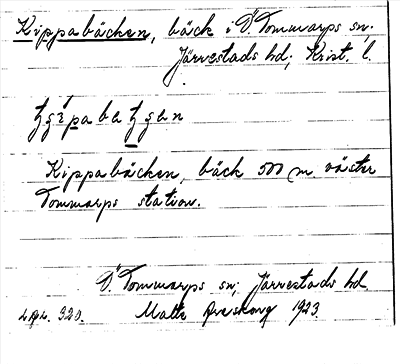 Kippabäcken, bäck i Ö. Tommarps sn;
Järrestads hd; Krist. l.
Kippabäcken, bäck 500 m väster
Tommarps station.
Ö. Tommarps sn; Järrestads hd.
320. Malte 1923